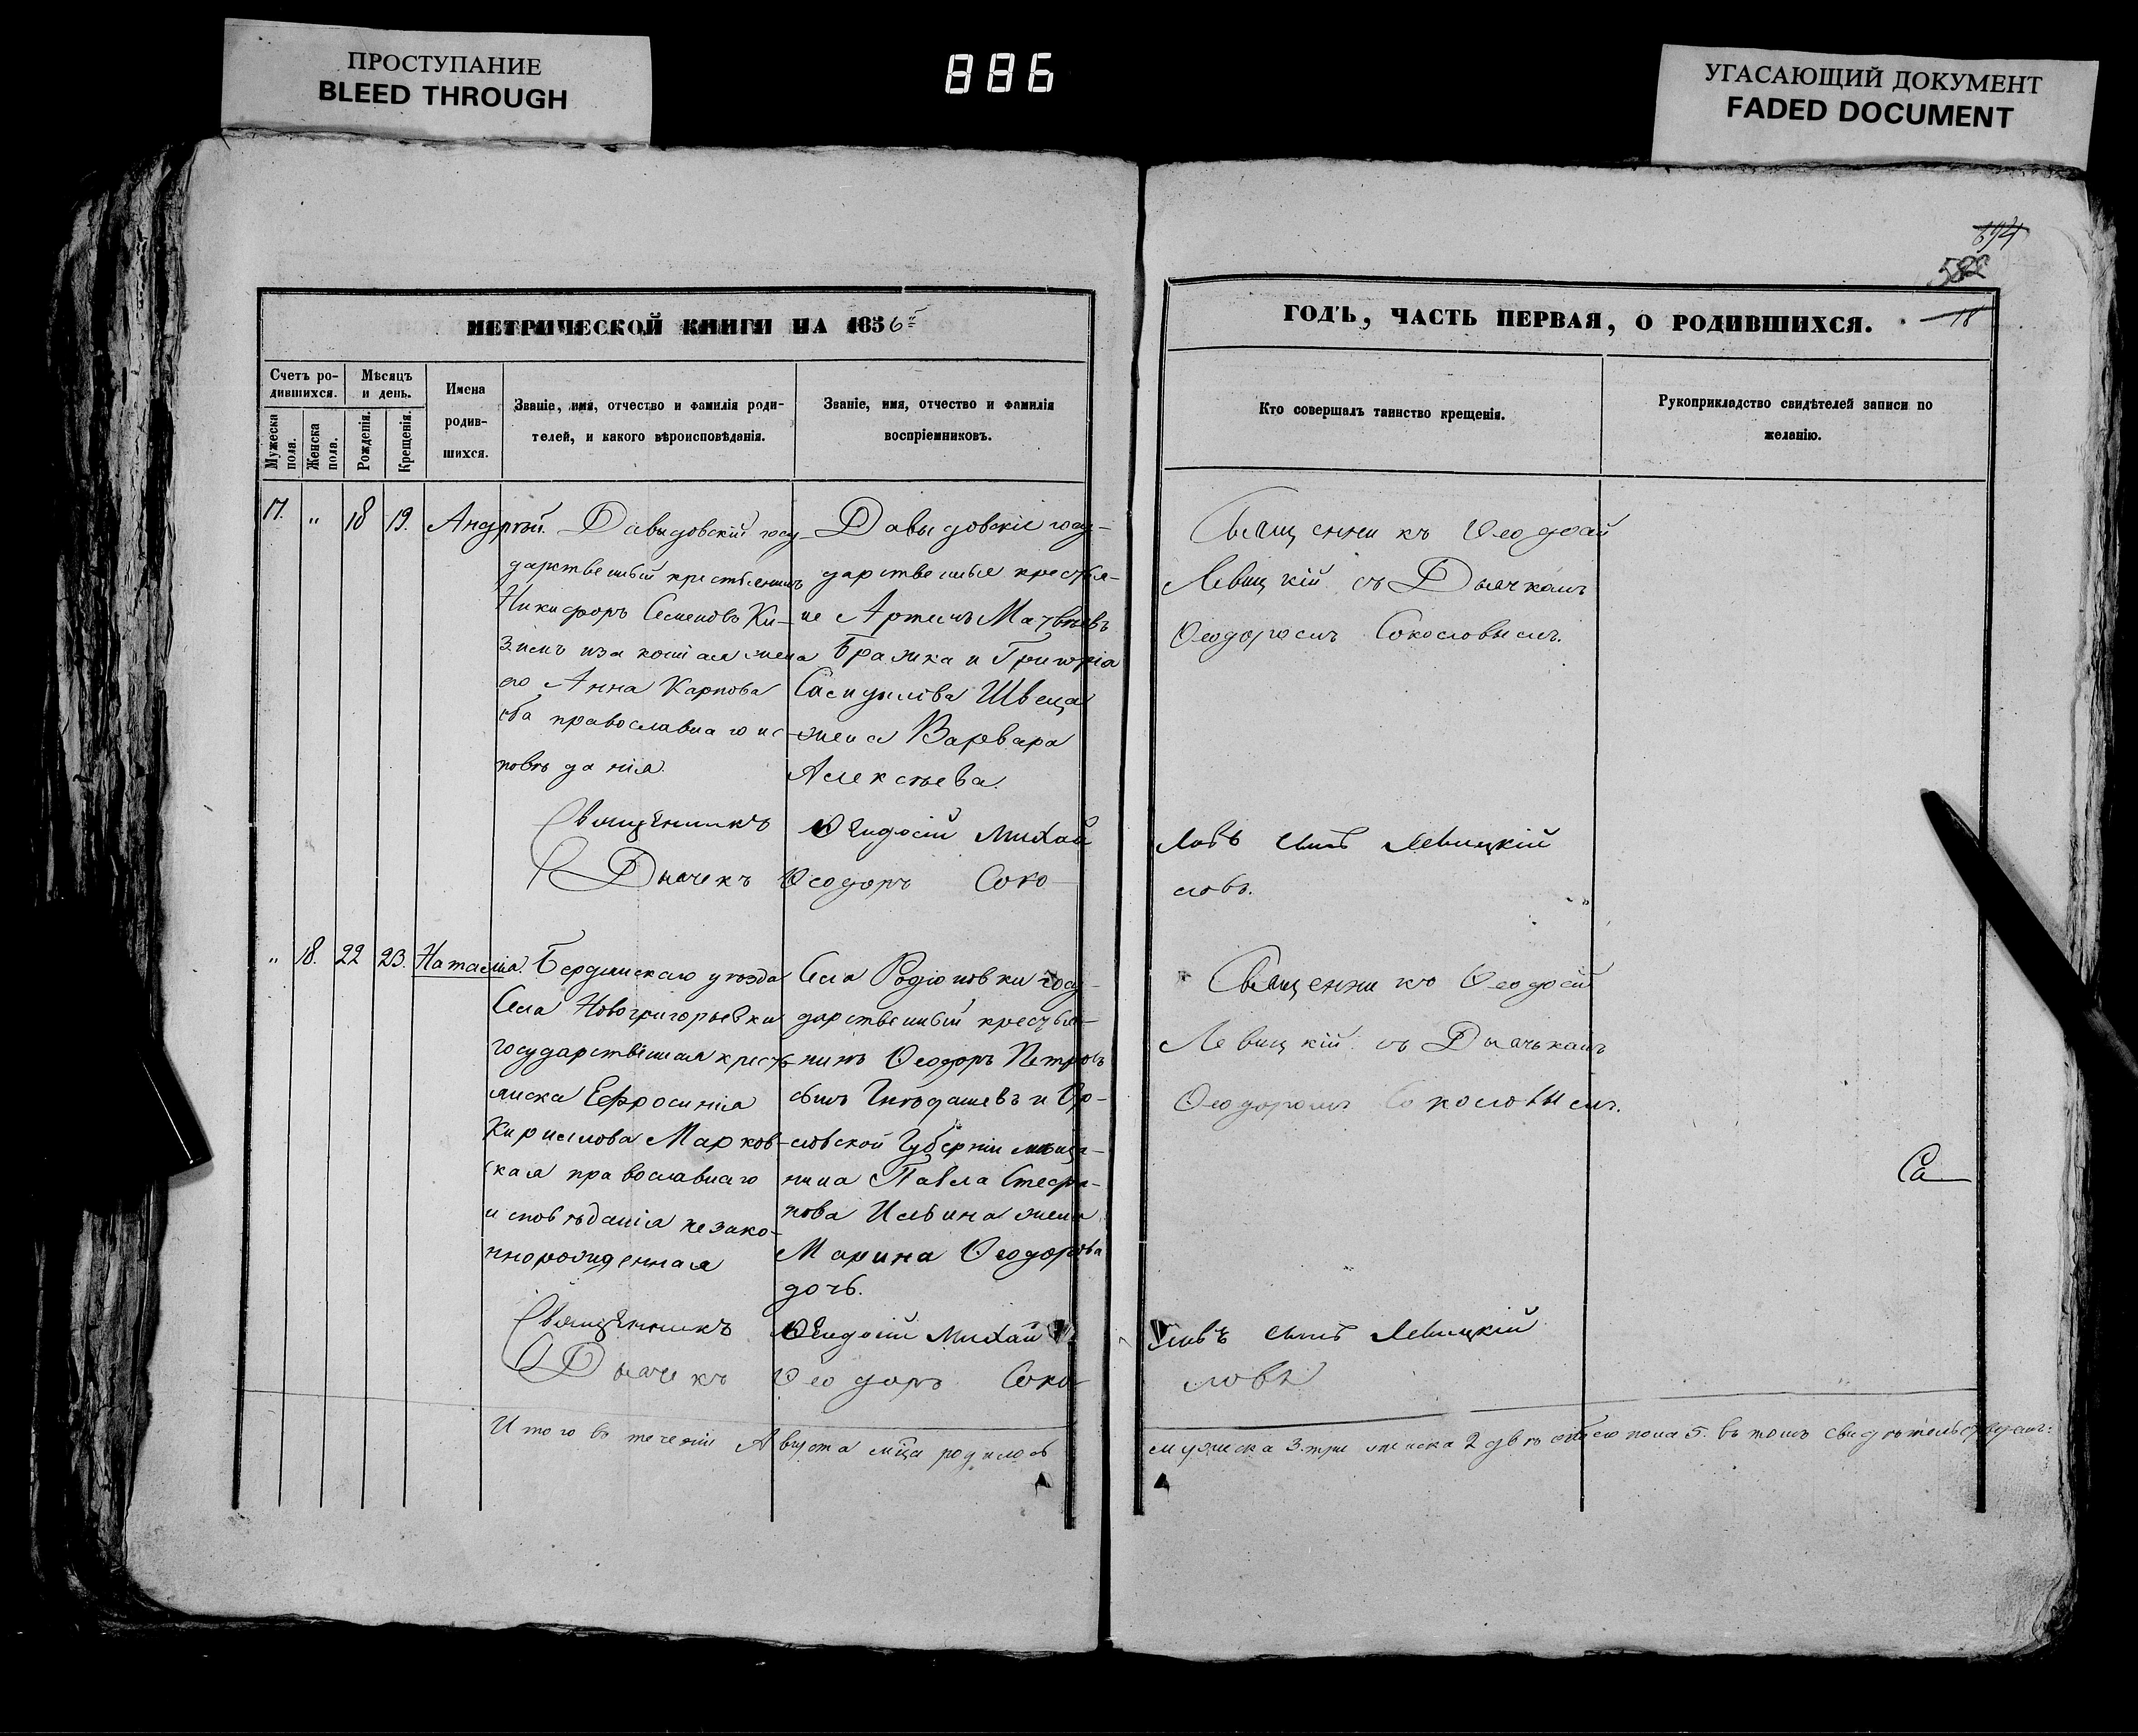 ПРОСТУПАНИЕ
BLEED THROUGH
886
УГАСАЮЩИЙ ДОКУМЕНТ
FADED DOCUMENT
582
18
МЕТРИЧЕСКОЙ КНИГИ НА 1856й
ГОДЪ, ЧАСТЬ ПЕРВАЯ, О РОДИВШИХСЯ.
Счетъ ро-
дившихся.
Мужеска
пола.
Женска
пола.
Мѣсяцъ
и день.
Рожденія.
Крещенія.
Имена
родив-
шихся.
Званіе, имя, отчество и фамилія роди-
телей, и какого вѣроисповѣданія.
Званіе, имя, отчество и фамилія
воспріемниковъ.
Кто совершалъ таинство крещенія.
Рукоприкладство свидѣтелей записи по
желанію.
17. " 18 19. Андрей.
Давыдовскій госу-
дарственный крестьянинъ
Никифоръ Семеновъ Ки-
зимъ и законная жена
его Анна Карпова
оба православнаго ис-
повѣданія.
Давыдовскіе госу-
дарственные крестья-
не Артемъ Матвѣевъ
Бражка и Григорія
Швеца
жена Варвара
Алексѣева.
Священникъ Ѳеодосій
Левицкій съ Дьячкомъ
Ѳеодоромъ Соколовымъ.
Священникъ Ѳеодосій Михай
ловъ сынъ Левицкій
Дьячекъ Ѳеодоръ Соко-
ловъ.
" 18. 22 23. Наталія.
Бердянскаго уѣзда
Села Новогригорьевки
государственная кресть-
янска Ефросинія
Кириллова Марков-
ская православнаго
исповѣданія незако-
ннорожденная
Села Родіоновки госу-
дарственный крестья-
нинъ Ѳеодоръ Петровъ
сынъ и Ор-
ловской Губерніи мѣща-
нина Павла Стефа-
нова Ильина жена
Марина Ѳеодорова
дочь.
Священникъ Ѳеодосій
Левицкій съ Дьячькомъ
Ѳеодоромъ Соколовымъ.
Са
Священникъ Ѳеодосій Михай
ловъ сынъ Левицкій
Дьячекъ Ѳеодоръ Соко
ловъ
Итого въ теченіи Августа мца родилось
мужска 3. три женска 2 двѣ обоего пола 5. въ томъ свидѣтельствуемъ: